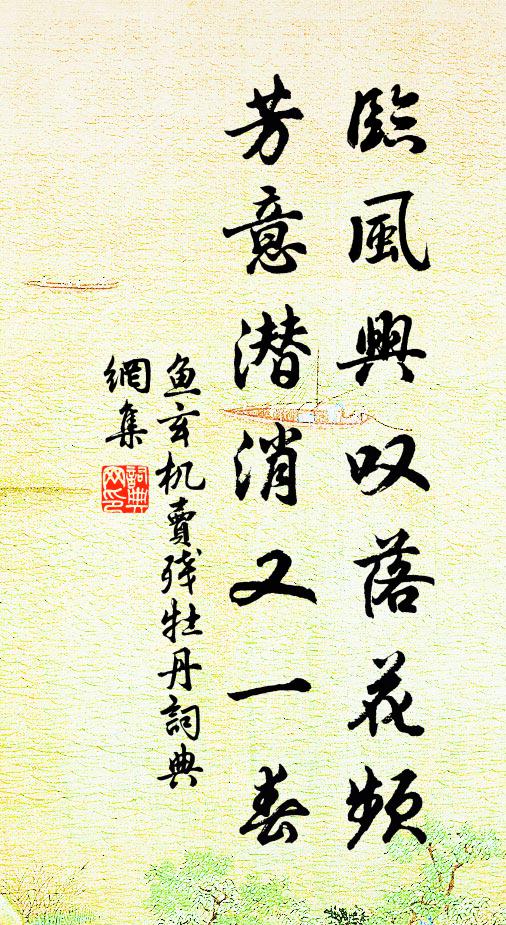 臨風興叹落花頻
芳意潜消又一春
魚玄机賣残牡丹詞典
網集
詞典
网印